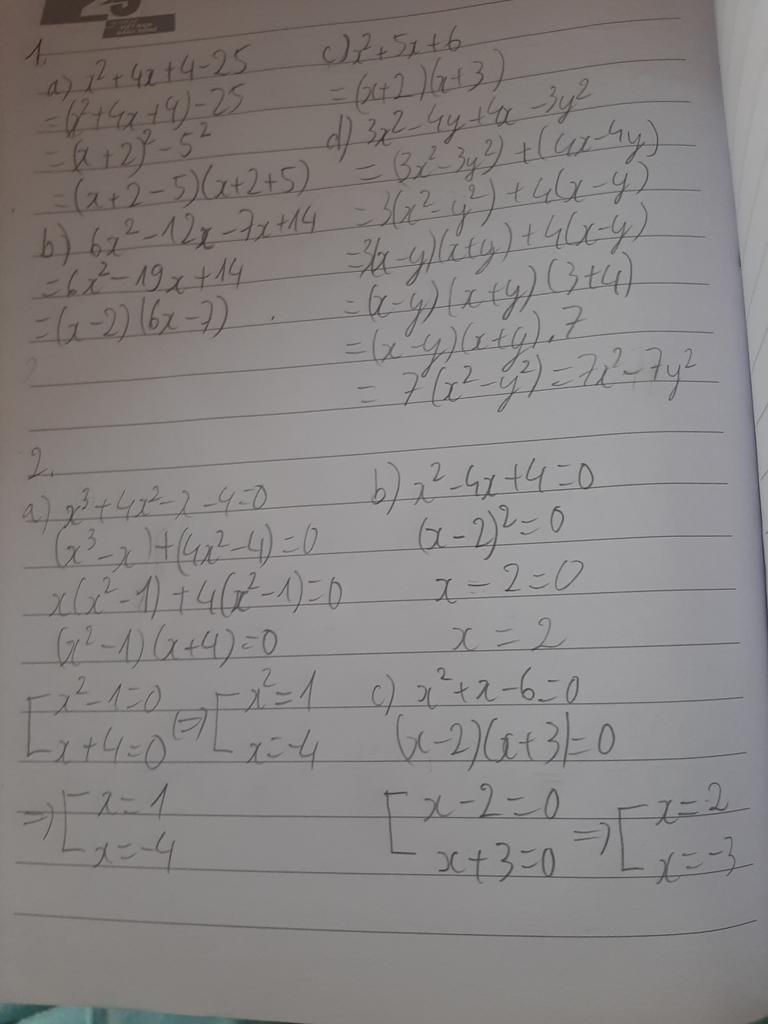 1.
a) x² + 4x + 4 - 25
= (x² + 4x + 4) - 25
= (x + 2)² - 5²
= (x + 2 - 5)(x + 2 + 5)
b) 6x² - 12x - 7x + 14
= 6x² - 19x + 14
= (x - 2)(6x - 7)
c) x² + 5x + 6
= (x + 2)(x + 3)
d) 3x² - 4y + 4x - 3y²
= (3x² - 3y²) + (4x - 4y)
= 3(x² - y²) + 4(x - y)
= 3(x - y)(x + y) + 4(x - y)
= (x - y)(x + y)(3 + 4)
= (x - y)(x + y).7
= 7(x² - y²) = 7x² - 7y²
2.
a) x³ + 4x² - x - 4 = 0
(x³ - x) + (4x² - 4) = 0
x(x² - 1) + 4(x² - 1) = 0
(x² - 1)(x + 4) = 0
[ x² - 1 = 0 => [ x² = 1
x + 4 = 0 x = -4
=> [ x = 1
x = -4
b) x² - 4x + 4 = 0
(x - 2)² = 0
x - 2 = 0
x = 2
c) x² + x - 6 = 0
(x - 2)(x + 3) = 0
[ x - 2 = 0 => [ x = 2
x + 3 = 0 x = -3